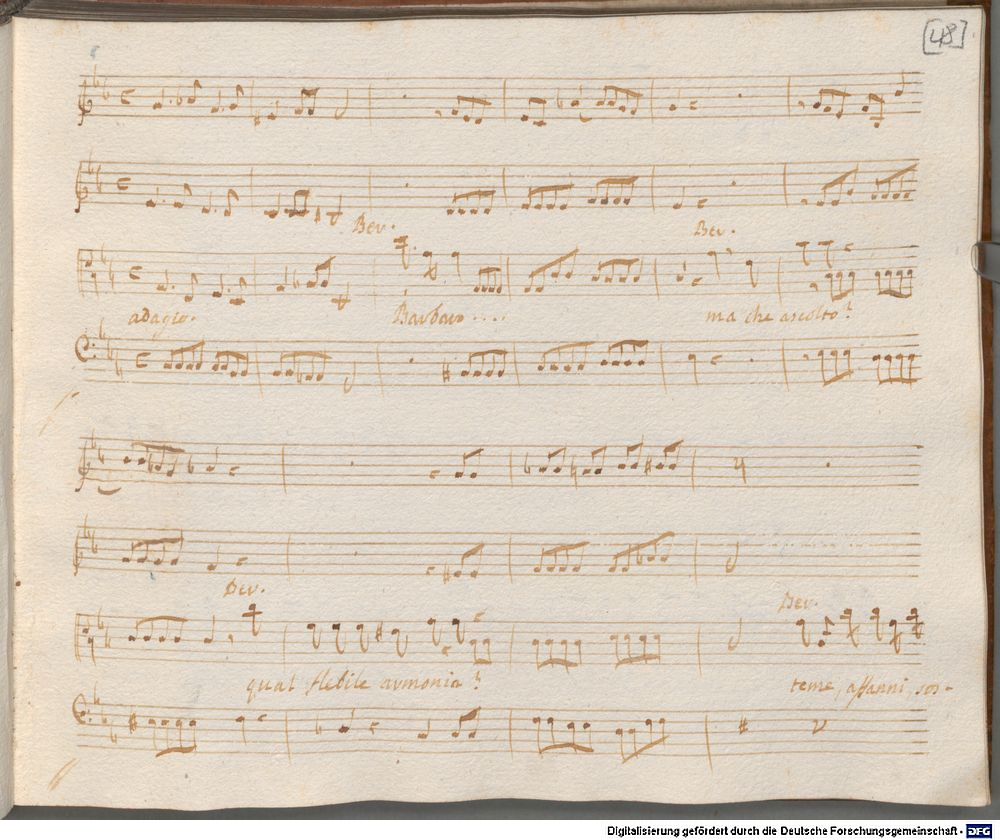 [48]
Ber. Ber.
adagio. Barbaro .... ma che ascolto?
Ber. Ber.
qual flebile armonia? teme, affanni, sos-
Digitalisierung gefördert durch die Deutsche Forschungsgemeinschaft - DFG